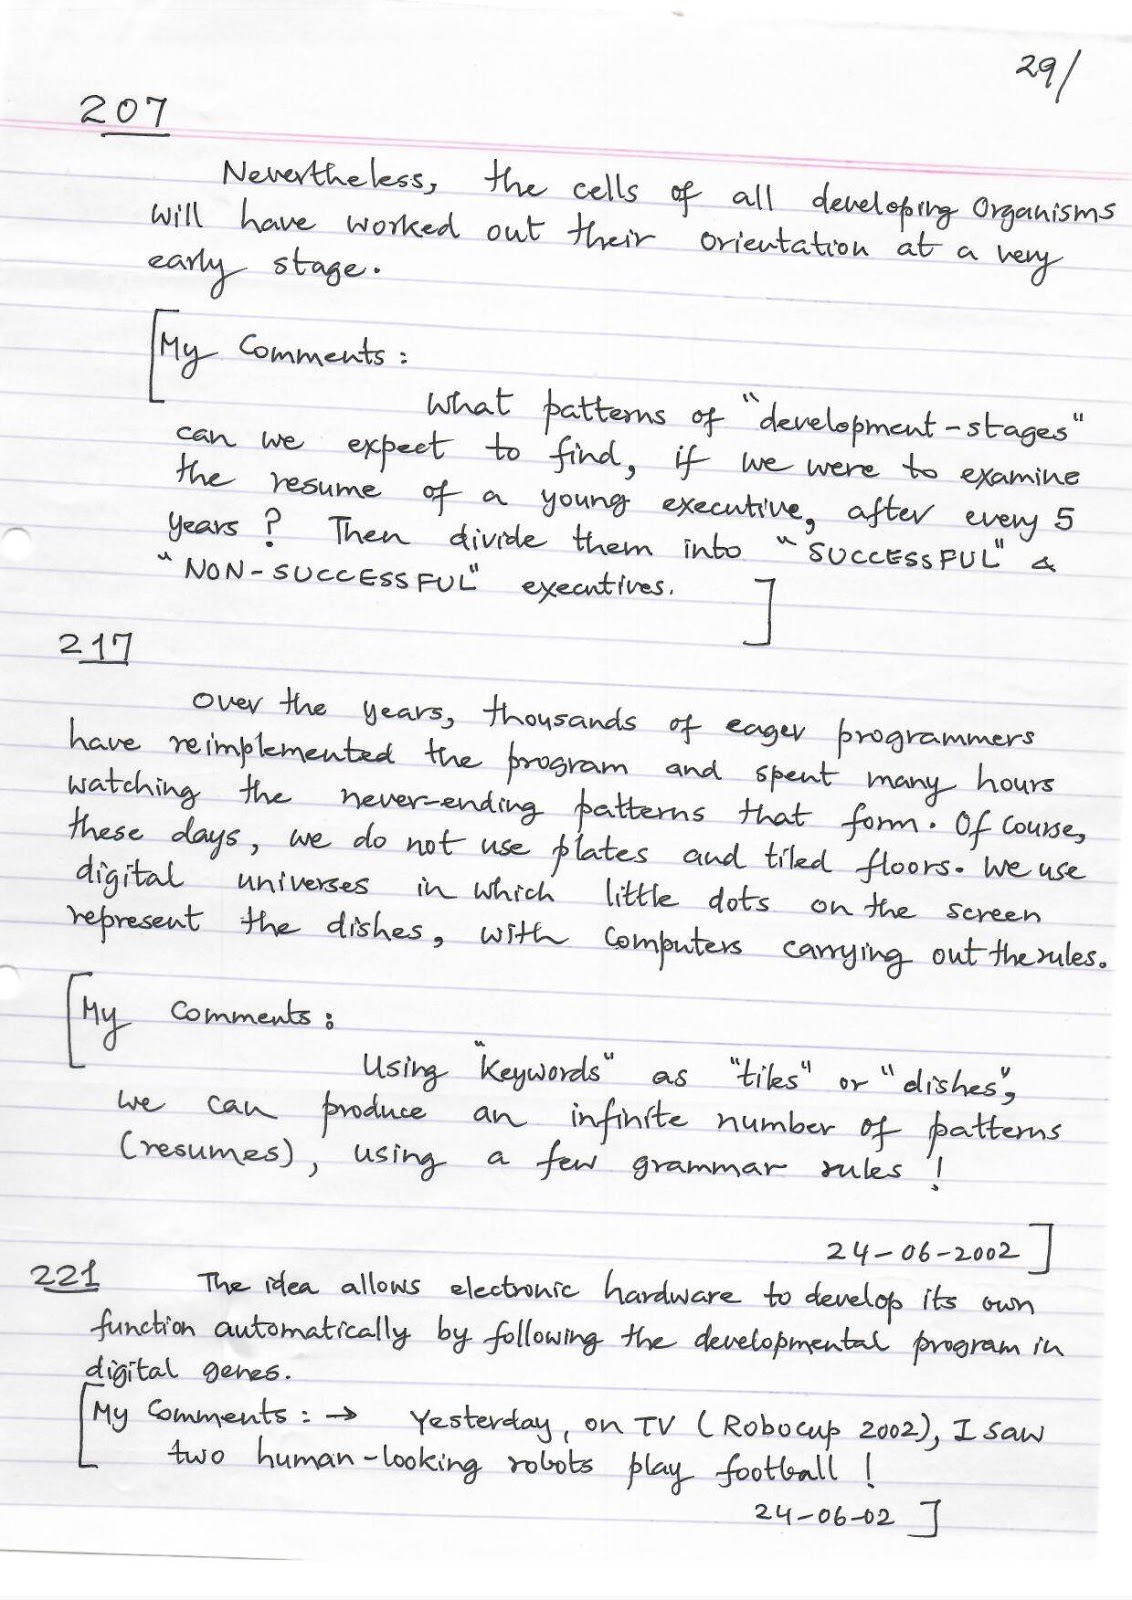 29/
207
Nevertheless, the cells of all developing organisms
will have worked out their orientation at a very
early stage.
[My Comments :
What patterns of "development-stages"
can we expect to find, if we were to examine
the resume of a young executive, after every 5
years ? Then divide them into "SUCCESSFUL" &
"NON-SUCCESSFUL" executives. ]
217
Over the years, thousands of eager programmers
have reimplemented the program and spent many hours
watching the never-ending patterns that form. Of course,
these days, we do not use plates and tiled floors. We use
digital universes in which little dots on the screen
represent the dishes, with computers carrying out the rules.
[My Comments :
Using "keywords" as "tiles" or "dishes",
we can produce an infinite number of patterns
(resumes), using a few grammar rules !
24-06-2002 ]
221 The idea allows electronic hardware to develop its own
function automatically by following the developmental program in
digital genes.
[My Comments : → Yesterday, on TV (Robocup 2002), I saw
two human-looking robots play football !
24-06-02 ]